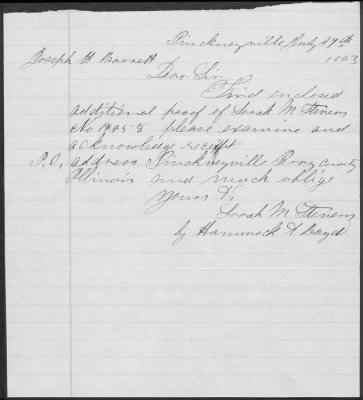 Pinckneyville July 27th
1863
Joseph H Barrett
Dear Sir,
Find enclosed
additional proof of Sarah M Stevens
No please examine and
acknowledge receipt
P.O. address Pinckneyville Perry County
Illinois and much oblige
Yours &c
Sarah M Stevens
by Hammock &